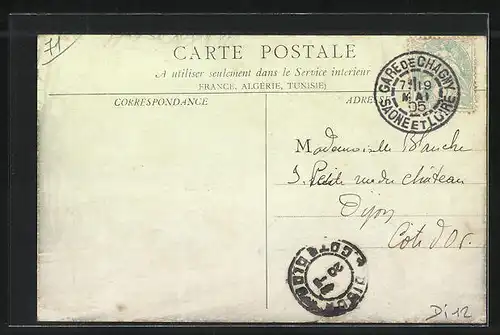 71
CARTE POSTALE
A utiliser seulement dans le Service intérieur
FRANCE, ALGÉRIE, TUNISIE)
CORRESPONDANCE
ADRES
GARE DE CHAGNY
7 19
MAI
05
SAONE ET LOIRE
Mademoiselle Blanche
3. Petite rue du château
Dijon
Côte d'Or.
DIJON
COTE D'OR
20
Di 12